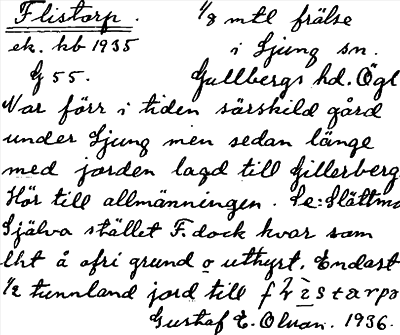 Flistorp. 1/8 mtl frälse
ek. kb 1935 i Ljung sn.
G 55. Gullbergs hd. Ögl
Var förr i tiden särskild gård
under Ljung men sedan länge
med jorden lagd till Gillerberg
Hör till allmänningen. Se: Slättmo
Själva stället F. dock kvar som
lht å ofri grund o uthyrt. Endast
1/2 tunnland jord till
Gustaf E. Olsson. 1936.